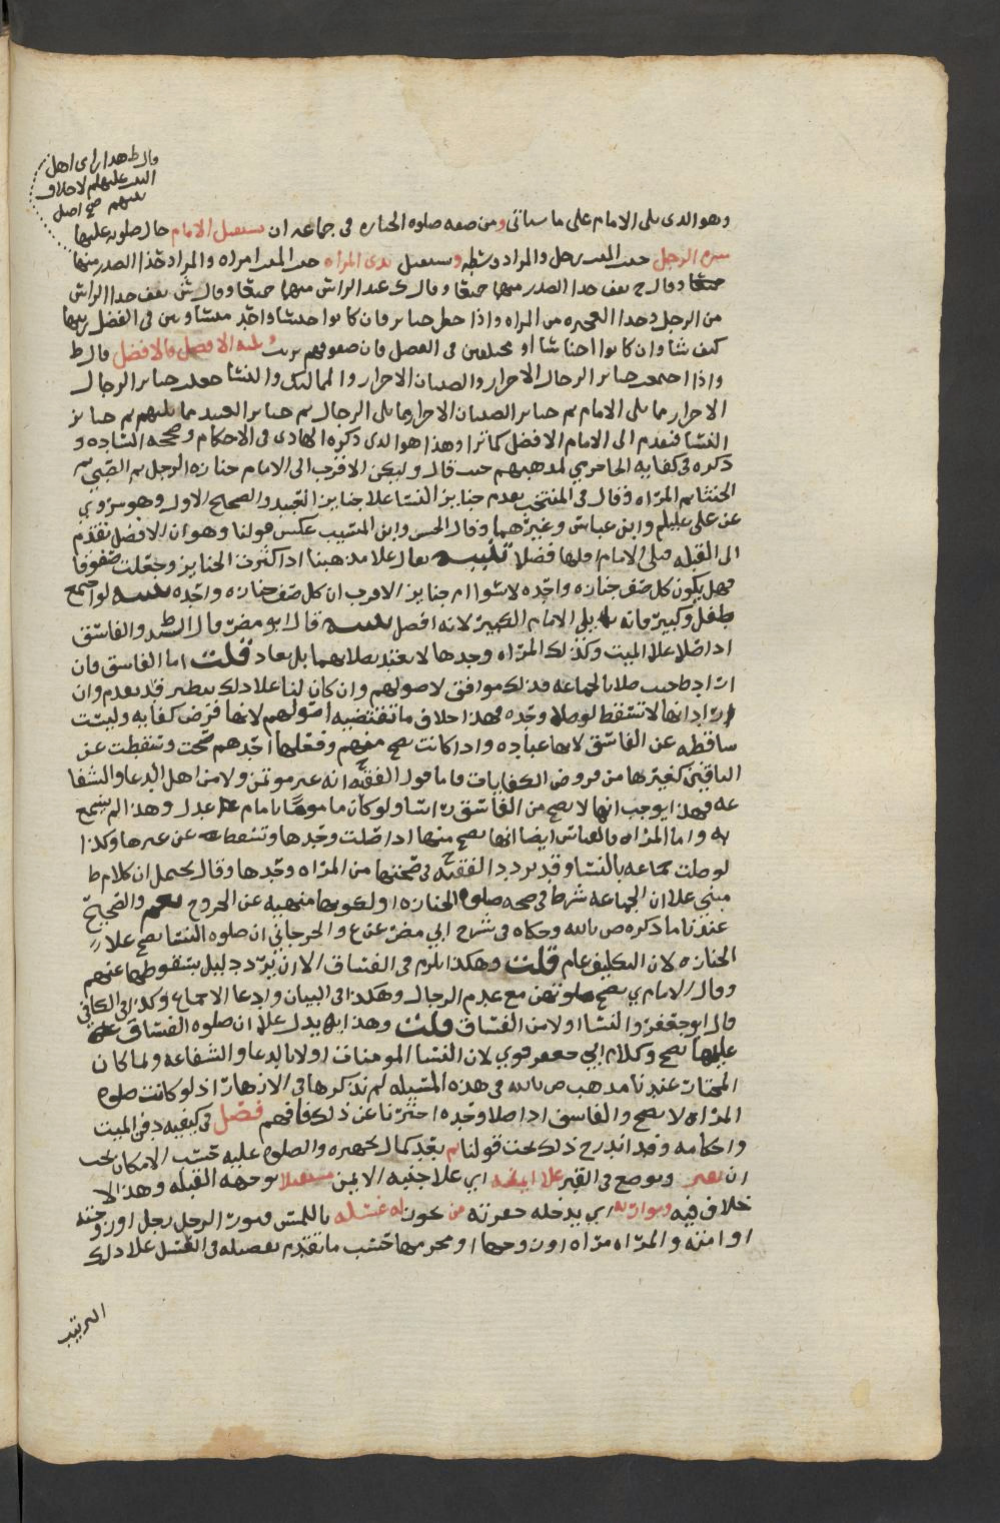 قال ط هذا راي اهل
البيت عليهم لا خلاف
بينهم صح اصل
وهو الذي يلي الامام على ما سياتي ومن صفه صلوه الجنازه في جماعه ان يستقبل الامام حال صلوته عليها
سره الرجل حيث الميت رجل والمراد وسطه ويستقبل ثدي المراه حيث الميت امراه والمراد حذا الصدر منها
جميعا وقال ح يقف حذا الصدر منهما جميعا وقال ك عند الراس منهما جميعا وقال ش يقف حذا الراس
من الرجل وحذا العجيزه من المراه واذا جعل جنايز فان كانوا جنسا واحد متساوين في الفضل رتبها
كيف شا وان كانوا اجناسا او مختلفين في الفضل فان صفوفهم ترتب يليه الافضل فالافضل قال ط
واذا اجتمعت جنايز الرجال الاحرار والصبيان الاحرار والمماليك والنسا جعلت جنايز الرجال
الاحرار مما يلي الامام ثم جنايز الصبيان الاحرار مما يلي الرجال ثم جنايز العبيد مما يليهم ثم جنايز
النسا فيقدم الى الامام الافضل كما ترا وهذا هو الذي ذكره الهادي في الاحكام وصححه الساده و
ذكره في كفايه الحاجرمي لمذهبهم حيث قال وليكن الاقرب الى الامام جنازه الرجل ثم الصبي ثم
الخنثا ثم المراه وقال في المنتخب يقدم جنايز النسا علا جنايز العبيد والصحيح الاول وهو مروي
عن علي عليلم وابن عباس وغيرهما وقال الحسن وابن المسيب عكس قولنا وهو ان الافضل يقدم
الى القبله فيلي الامام اقلها فضلا تنبيه يقال علا مذهبنا اذا كثرت الجنايز وجعلت صفوفا
فهل يكون كل صف جنازه واحده لا سوا ام جنايز الاقرب ان كل صف جنازه واحده تنبيه لو اجتمع
طفل وكبير فانه يلي الامام الكبير لانه افضل تنبيه قال ابو مضر قال والفاسق
اذا صلا علا الميت وكذلك المراه وحدها لا يعتد بصلاتهما بل يعاد قلت اما الفاسق فان
اراد ط حيث صلا بالجماعه فذلك موافق لاصولهم وان كان لنا علا ذلك نظر قد تقدم وان
اراد انها لا تسقط لو صلا وحده فهذا خلاف ما تقتضيه اصولهم لانها فرض كفايه وليست
ساقطه عن الفاسق لانها عباده واذا كانت تصح منهم وفعلها احدهم صحت وتسقطت عن
الباقين كغيرها من فروض الكفايات فاما قول الفقيه انه غير موتمن ولا من اهل الدعا والشفا
عه فهذا يوجب انها لا تصح من الفاسق راسا ولو كان ماموما بامام عدل وهذا لم يسمع
به واما المراه فالقياس ايضا انها تصح منها اذا صلت وحدها وتسقط عن غيرها وكذا
لو صلت جماعه بالنسا وقد تردد الفقيه ي في صحتها من المراه وحدها وقال يحتمل ان كلام ط
مبني علا ان الجماعه شرط في صحه صلوه الجنازه او لكونها منهيه عن الخروج نعم والصحيح
عندنا ما ذكره ص بالله وحكاه في شرح ابي مضر عن ع والجرجاني ان صلوه النسا تصح علا
الجنازه لان التكليف عام قلت وهكذا يلزم في الفساق الا ان يرد دليل بسقوطها عنهم
وقال الامام ي تصح صلوتهن مع عدم الرجال وهكذا في البيان وادعا الاجماع وكذا في الكافي
قال ابو جعفر والنسا اولا من الفساق قلت وهذا يدل علا ان صلوه الفساق
عليها تصح وكلام ابي جعفر قوي لان النسا المومنات اولا بالدعا والشفاعه ولما كان
المختار عندنا مذهب ص بالله في هذه المسيله لم نذكرها في الازهار اذ لو كانت صلوه
المراه لا تصح والفاسق اذا صلا وحده احترزنا عن ذلك فافهم فصل في كيفيه دفن الميت
واحكامه وقد اندرج ذلك تحت قولنا ثم بعد كمال تجهيزه والصلوه عليه حسب الامكان يجب
ان يقبر ويوضع في القبر علا ايمنه اي علا جنبه الايمن مستقبلا بوجهه القبله وهذا لا
خلاف فيه ويواريه اي يدخله حفرته من يجوز له غسله باللمس فيوري الرجل رجل او زوجته
او امته والمراه مراه او زوجها او محرمها حسب ما تقدم تفصيله في الغسل علا ذلك
الترتيب